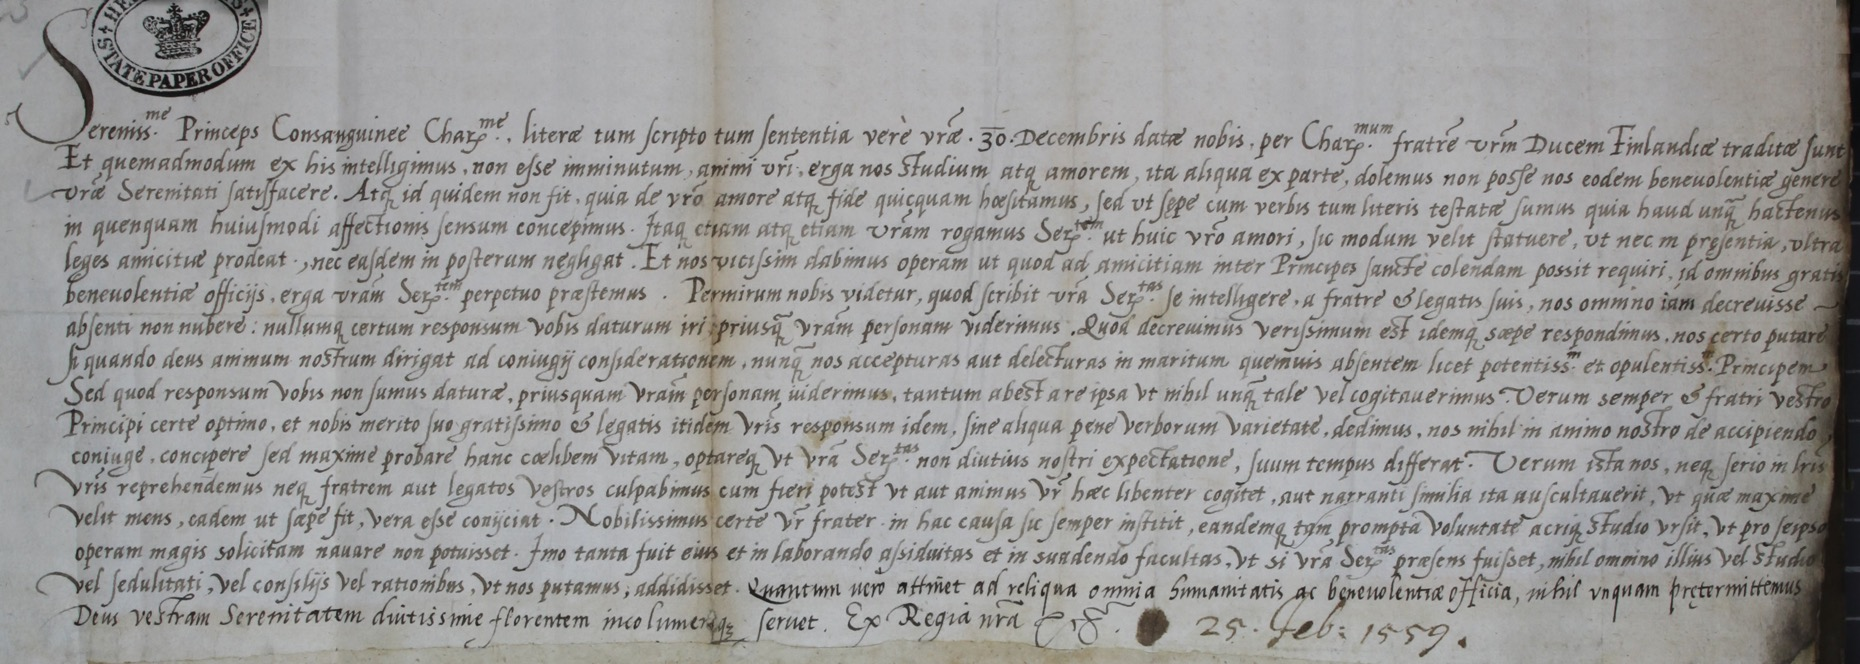 HER MAJESTY'S STATE PAPER OFFICE
Sereniss.me Princeps Consanguinee Char.me, literæ tum scripto tum sententia verè vrãe .30. Decembris datæ nobis, per Char.mum fratrẽ vrm̃ Ducem Finlandiæ traditæ sunt
Et quemadmodum ex his intelligimus, non esse imminutum, animi vri͂, erga nos studium atq amorem, ita aliqua ex parte, dolemus non posse nos eodem beneuolentiæ genere
vrãe Serenitati satisfacere. Atq id quidem non fit, quia de vrõ amore atq fide quicquam hæsitamus, sed vt sępe cum verbis tum literis testatæ sumus quia haud unq̃ hactenus
in quenquam huiusmodi affectionis sensum concepimus. Itaq etiam atq etiam vrãm rogamus Ser.tem ut huic vrõ amori, sic modum velit statuere, vt nec in pręsentia, vltra
leges amicitiæ prodeat, nec easdem in posterum negligat. Et nos vicissim dabimus operam ut quod ad amicitiam inter Principes sanctè colendam possit requiri, id omnibus gratis
beneuolentiæ officijs, erga vrãm Ser.tem perpetuo præstemus. Permirum nobis videtur, quod scribit vrã Ser.tas se intelligere, a fratre & legatis suis, nos omnino iam decreuisse
absenti non nubere: nullumq certum responsum vobis daturum iri priusq̃ vrãm personam viderimus. Quod decreuimus verissimum est idemq sæpe respondimus, nos certo putare
si quando deus animum nostrum dirigat ad coniugij considerationem, nunq̃ nos accepturas aut delecturas in maritum quemuis absentem licet potentiss.m et opulentiss.m Principem
Sed quod responsum vobis non sumus daturæ, priusquam vrãm personam uiderimus, tantum abest a re ipsa vt nihil unq̃ tale vel cogitauerimus. Verum semper & fratri vestro
Principi certe optimo, et nobis merito suo gratissimo & legatis itidem vrĩs responsum idem, sine aliqua pene verborum varietate, dedimus, nos nihil in animo nostro de accipiendo
coniuge, concipere sed maxime probare hanc cœlibem vitam, optareq vt vrã Ser.tas non diutius nostri expectatione, suum tempus differat. Verum ista nos, neq serio in lrĩs
vrĩs reprehendemus neq fratrem aut legatos vestros culpabimus cum fieri potest vt aut animus vr̃ hæc libenter cogitet, aut narranti similia ita auscultauerit, vt quæ maxime
velit mens, eadem ut sæpe fit, vera esse conijciat. Nobilissimus certe vr̃ frater in hac causa sic semper institit, eandemq tam promptã voluntatẽ acriq studio vrsit, vt pro seipso
operam magis solicitam nauare non potuisset. Imo tanta fuit eius et in laborando assiduitas et in suadendo facultas, vt si vrã Ser.tas præsens fuisset, nihil omnino illius vel studio
vel sedulitati, vel consilijs vel rationibus, vt nos putamus, addidisset. Quantum uero attinet ad reliqua omnia humanitatis ac beneuolentiæ officia, nihil vnquam prętermittemus
Deus vestram Serenitatem diutissime florentem incolumemq seruet. Ex Regia nrã
25. feb: 1559.